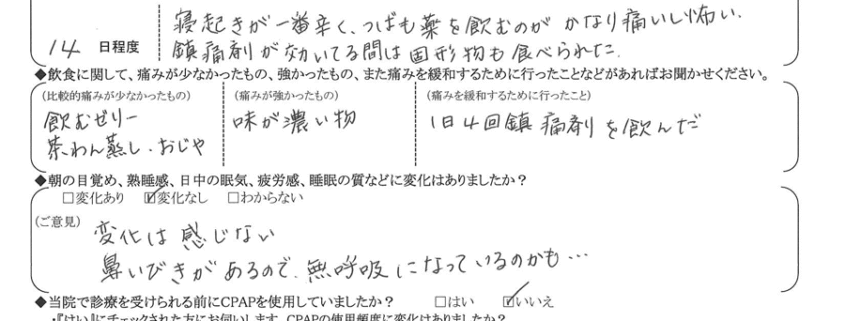 寝起きが一番辛く、つばも薬を飲むのがかなり痛いし怖い.
14 日程度
鎮痛剤が効いてる間は固形物も食べられた.
◆飲食に関して、痛みが少なかったもの、強かったもの、また痛みを緩和するために行ったことなどがあればお聞かせください。
(比較的痛みが少なかったもの)
飲むゼリー
茶わん蒸し・おじや
(痛みが強かったもの)
味が濃い物
(痛みを緩和するために行ったこと)
1日4回鎮痛剤を飲んだ
◆朝の目覚め、熟睡感、日中の眠気、疲労感、睡眠の質などに変化はありましたか?
□変化あり ☑変化なし □わからない
(ご意見)
変化は感じない
鼻いびきがあるので、無呼吸になっているのかも…
◆当院で診療を受けられる前にCPAPを使用していましたか? □はい ☑いいえ
・『はい』にチェックされた方にお伺いします。CPAPの使用頻度に変化はありましたか?